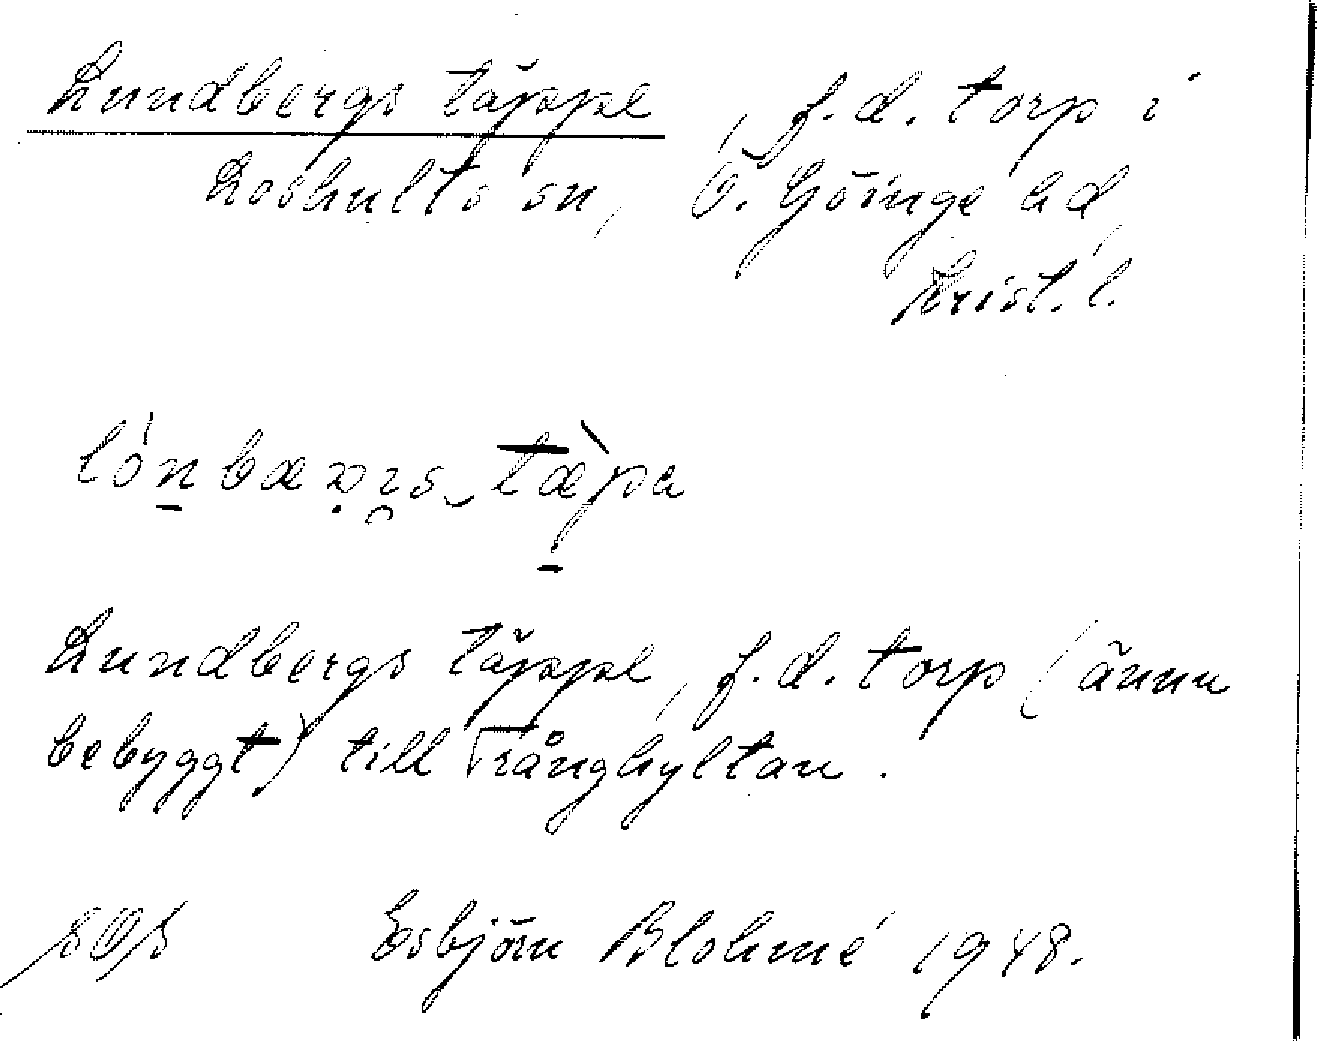 Lundbergs täppe, f.d. torp i
Loshults sn, Ö. Göinge hd,
Krist. l.
Lundbergs täppe, f.d. torp (ännu
bebyggt) till Trånghyltan.
Esbjörn Blohmé 1948.